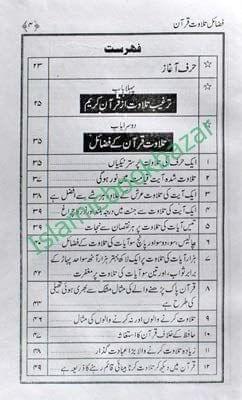 فضائل تلاوت قرآن
﴿۴﴾
فهرست
☆ حرف آغاز ۲۳
پہلا باب
☆ ترغیب تلاوت از قرآن کریم ۲۵
دوسرا باب
☆ تلاوت قرآن کے فضائل ۳۵
۱ ایک حرف کی تلاوت پر ستر نیکیاں ۳۵
۲ تلاوت شدہ آیت قیامت میں نور ہوگی
۳ ایک آیت کی تلاوت عرش کے علاوہ ہر شے سے افضل ہے ۳۸
۴ ایک آیت کی تلاوت سے جنت میں درجہ بلند اور نور کا چراغ
۵ تیس آیات کی تلاوت پر ہر نقصان سے نجات
۶ چالیس، سو، دو سو اور پانچ سو آیات کی تلاوت کے فضائل
۷ ہزار آیات کی تلاوت پر ایک لاکھ بہتر ہزار آٹھ سو احد پہاڑ کے
برابر ثواب، اور تین سو آیات کی تلاوت پر مغفرت
۸ قرآن پاک پڑھنے والے کی مثال مشک سے بھری ہوئی تھیلی
کی طرح ہے
۹ تلاوت کرنے والوں اور نہ کرنے والوں کی مثال
۱۰ حافظ کے خلاف قرآن کا استغاثہ ۴۷
۱۱ زیادہ تلاوت کرنے والا بڑا عبادت گذار ۴۸
۱۲ قرآن میں دیکھ کر تلاوت کرنا بینائی قائم رہنے کا ذریعہ ہے ۴۹
Islamicbookbazar